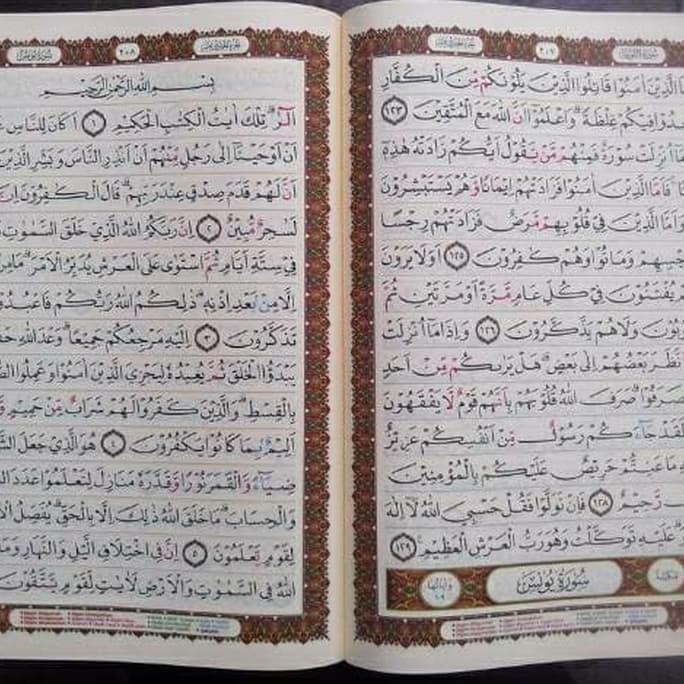 ٢٠٧
اَيُّهَا الَّذِيْنَ اٰمَنُوْا قَاتِلُوا الَّذِيْنَ يَلُوْنَكُمْ مِّنَ الْكُفَّارِ
جِدُوْا فِيْكُمْ غِلْظَةً ۗ وَاعْلَمُوْٓا اَنَّ اللّٰهَ مَعَ الْمُتَّقِيْنَ ١٢٣
مَآ اُنْزِلَتْ سُوْرَةٌ فَمِنْهُمْ مَّنْ يَّقُوْلُ اَيُّكُمْ زَادَتْهُ هٰذِهٖٓ
فَاَمَّا الَّذِيْنَ اٰمَنُوْا فَزَادَتْهُمْ اِيْمَانًا وَّهُمْ يَسْتَبْشِرُوْنَ
وَاَمَّا الَّذِيْنَ فِيْ قُلُوْبِهِمْ مَّرَضٌ فَزَادَتْهُمْ رِجْسًا
رِجْسِهِمْ وَمَاتُوْا وَهُمْ كٰفِرُوْنَ ١٢٥ اَوَلَا يَرَوْنَ
هُمْ يُفْتَنُوْنَ فِيْ كُلِّ عَامٍ مَّرَّةً اَوْ مَرَّتَيْنِ ثُمَّ
يَتُوْبُوْنَ وَلَا هُمْ يَذَّكَّرُوْنَ ١٢٦ وَاِذَا مَآ اُنْزِلَتْ
نَّظَرَ بَعْضُهُمْ اِلٰى بَعْضٍ ۗ هَلْ يَرٰىكُمْ مِّنْ اَحَدٍ
انْصَرَفُوْا ۗ صَرَفَ اللّٰهُ قُلُوْبَهُمْ بِاَنَّهُمْ قَوْمٌ لَّا يَفْقَهُوْنَ
لَقَدْ جَاۤءَكُمْ رَسُوْلٌ مِّنْ اَنْفُسِكُمْ عَزِيْزٌ
مَا عَنِتُّمْ حَرِيْصٌ عَلَيْكُمْ بِالْمُؤْمِنِيْنَ
رَّحِيْمٌ ١٢٨ فَاِنْ تَوَلَّوْا فَقُلْ حَسْبِيَ اللّٰهُ لَآ اِلٰهَ
عَلَيْهِ تَوَكَّلْتُ وَهُوَ رَبُّ الْعَرْشِ الْعَظِيْمِ ١٢٩
سُوْرَةُ يُوْنُسَ
٢٠٨
بِسْمِ اللّٰهِ الرَّحْمٰنِ الرَّحِيْمِ
الۤرٰ ۗ تِلْكَ اٰيٰتُ الْكِتٰبِ الْحَكِيْمِ ١ اَكَانَ لِلنَّاسِ
اَنْ اَوْحَيْنَآ اِلٰى رَجُلٍ مِّنْهُمْ اَنْ اَنْذِرِ النَّاسَ وَبَشِّرِ الَّذِيْنَ
اَنَّ لَهُمْ قَدَمَ صِدْقٍ عِنْدَ رَبِّهِمْ ۗ قَالَ الْكٰفِرُوْنَ اِنَّ
لَسٰحِرٌ مُّبِيْنٌ ٢ اِنَّ رَبَّكُمُ اللّٰهُ الَّذِيْ خَلَقَ السَّمٰوٰتِ
فِيْ سِتَّةِ اَيَّامٍ ثُمَّ اسْتَوٰى عَلَى الْعَرْشِ يُدَبِّرُ الْاَمْرَ ۗ مَا مِنْ
اِلَّا مِنْۢ بَعْدِ اِذْنِهٖ ۗ ذٰلِكُمُ اللّٰهُ رَبُّكُمْ فَاعْبُدُوْ
تَذَكَّرُوْنَ ٣ اِلَيْهِ مَرْجِعُكُمْ جَمِيْعًا ۗ وَعْدَ اللّٰهِ حَ
يَبْدَؤُا الْخَلْقَ ثُمَّ يُعِيْدُهٗ لِيَجْزِيَ الَّذِيْنَ اٰمَنُوْا وَعَمِلُوا
بِالْقِسْطِ ۗ وَالَّذِيْنَ كَفَرُوْا لَهُمْ شَرَابٌ مِّنْ حَمِيْمٍ
اَلِيْمٌ ۢبِمَا كَانُوْا يَكْفُرُوْنَ ٤ هُوَ الَّذِيْ جَعَلَ
ضِيَاۤءً وَّالْقَمَرَ نُوْرًا وَّقَدَّرَهٗ مَنَازِلَ لِتَعْلَمُوْا عَدَدَ
وَالْحِسَابَ ۗ مَا خَلَقَ اللّٰهُ ذٰلِكَ اِلَّا بِالْحَقِّ ۗ يُفَصِّلُ
لِقَوْمٍ يَّعْلَمُوْنَ ٥ اِنَّ فِى اخْتِلَافِ الَّيْلِ وَالنَّهَارِ وَمَا
اللّٰهُ فِى السَّمٰوٰتِ وَالْاَرْضِ لَاٰيٰتٍ لِّقَوْمٍ يَّتَّقُوْنَ